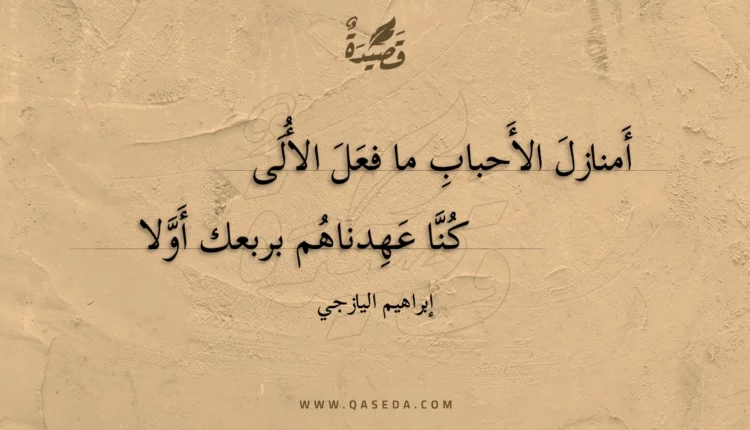 قَصِيدَةٌ
أَمنازلَ الأَحبابِ ما فعَلَ الأُلَى
كُنَّا عَهِدناهُم بربعك أَوَّلا
إبراهيم اليازجي
WWW.QASEDA.COM